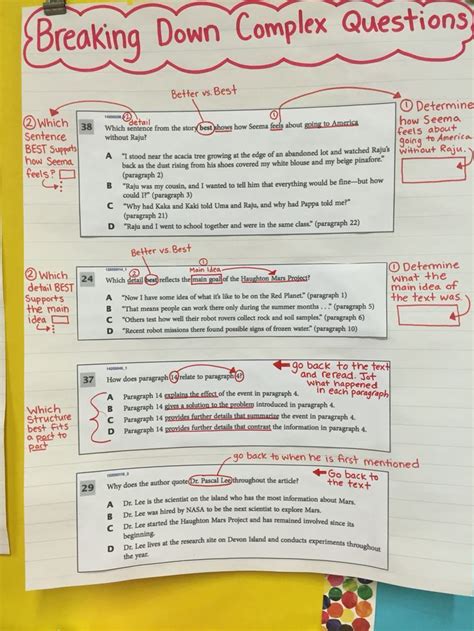 Breaking Down Complex Questions
Better vs. Best
② Which
Sentence
BEST Supports
how Seema
feels?
① Determine
how Seema
feels about
going to America
without Raju.
② detail
①
38 Which sentence from the story best shows how Seema feels about going to America
without Raju?
A "I stood near the acacia tree growing at the edge of an abandoned lot and watched Raju's
back as the dust rising from his shoes covered my white blouse and my beige pinafore."
(paragraph 2)
B "Raju was my cousin, and I wanted to tell him that everything would be fine—but how
could I?" (paragraph 3)
C "Why had Kaka and Kaki told Uma and Raju, and why had Pappa told me?"
(paragraph 21)
D "Raju and I went to school together and were in the same class." (paragraph 22)
Better vs. Best
①
Main Idea
② Which
detail BEST
Supports
the main
idea
① Determine
what the
main idea of
the text was.
24 Which detail best reflects the main goal of the Haughton Mars Project?
A "Now I have some idea of what it's like to be on the Red Planet." (paragraph 1)
B "That means people can work there only during the summer months . . ." (paragraph 5)
C "Others test how well their robot rovers collect rock and soil samples." (paragraph 6)
D "Recent robot missions there found possible signs of frozen water." (paragraph 10)
go back to the text
and reread. Jot
what happened
in each paragraph
Which
Structure
best fits
a part to
part
37 How does paragraph 14 relate to paragraph 4?
A Paragraph 14 explains the effect of the event in paragraph 4.
B Paragraph 14 gives a solution to the problem introduced in paragraph 4.
C Paragraph 14 provides further details that summarize the event in paragraph 4.
D Paragraph 14 provides further details that contrast the information in paragraph 4.
go back to when he is first mentioned
Go back to
the text
29 Why does the author quote Dr. Pascal Lee throughout the article?
A Dr. Lee is the scientist on the island who has the most information about Mars.
B Dr. Lee was hired by NASA to be the next scientist to explore Mars.
C Dr. Lee started the Haughton Mars Project and has remained involved since its
beginning.
D Dr. Lee lives at the research site on Devon Island and conducts experiments throughout
the year.